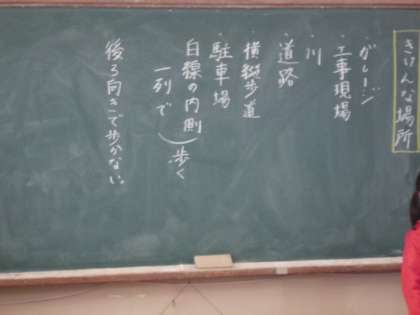 きけんな場所
・ガレージ
・工事現場
・川
・道路
・横断歩道
・駐車場
白線の内側
一列で
歩く
後ろ向きで歩かない。